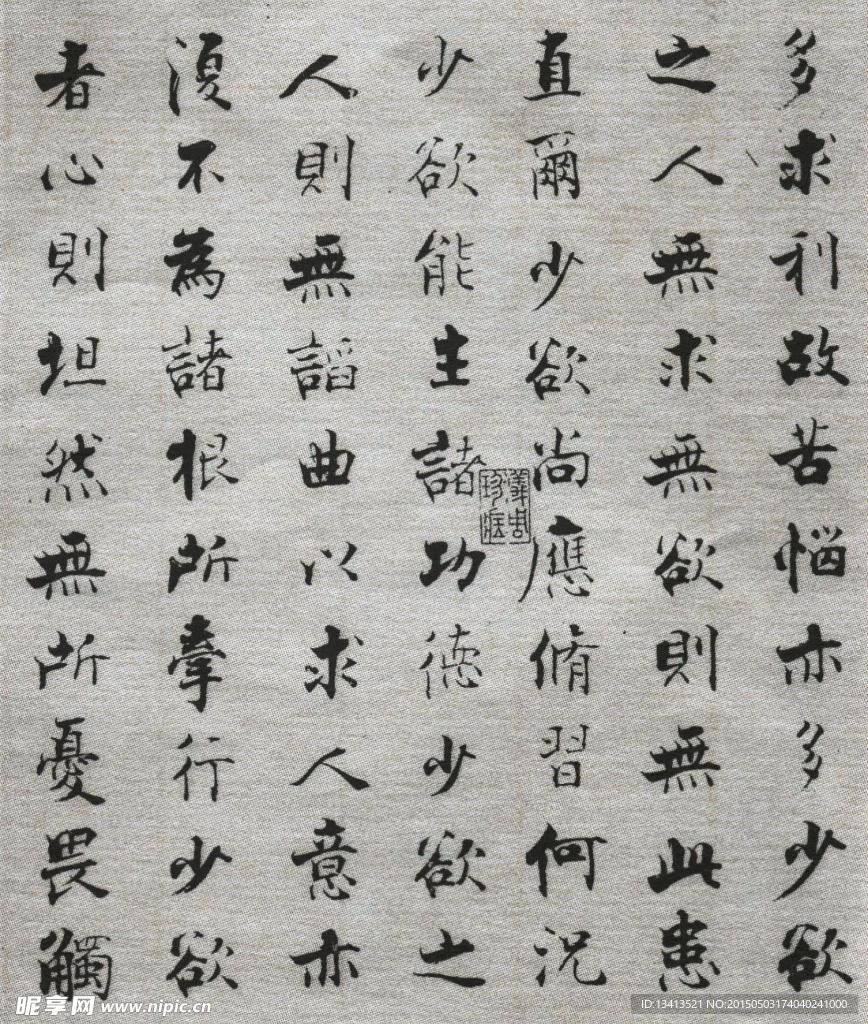 多求利故苦惱亦多少欲
之人無求無欲則無此患
直爾少欲尚應脩習何況
少欲能生諸功德少欲之
人則無諂曲以求人意亦
復不為諸根所牽行少欲
者心則坦然無所憂畏觸
昵享网 www.nipic.cn
ID:13413521 NO:20150503174040241000